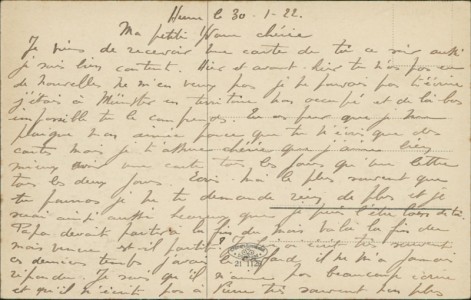 Hunx le 30-1-22.
Ma petite femme chérie
Je viens de recevoir une carte de toi ce soir aussi
je suis bien content. Hier et avant-hier tu n'as pas eu
de nouvelles ne m'en veux pas je ne pouvais pas t'écrire
j'étais à Münster en territoire non occupé et de là-bas
impossible tu le comprends. Tu as peur que je
parce que je n'écris que des
cartes mais je t'assure chérie que j'aime bien
mieux avoir une carte tous les jours qu'une lettre
tous les deux jours. Ecris moi le plus souvent que
tu pourras je ne te demande rien de plus et je
serai aussi heureux que je peux l'être loin de toi
Papa devait partir à la fin du mois voilà la fin du
mais venue est-il parti? écrit très souvent
ces derniers temps j'avais il ne m'a jamais
répondu. Je sais qu'il n'aime pas beaucoup écrire
et qu'il n'écrit pas à Pierre très souvent non plus